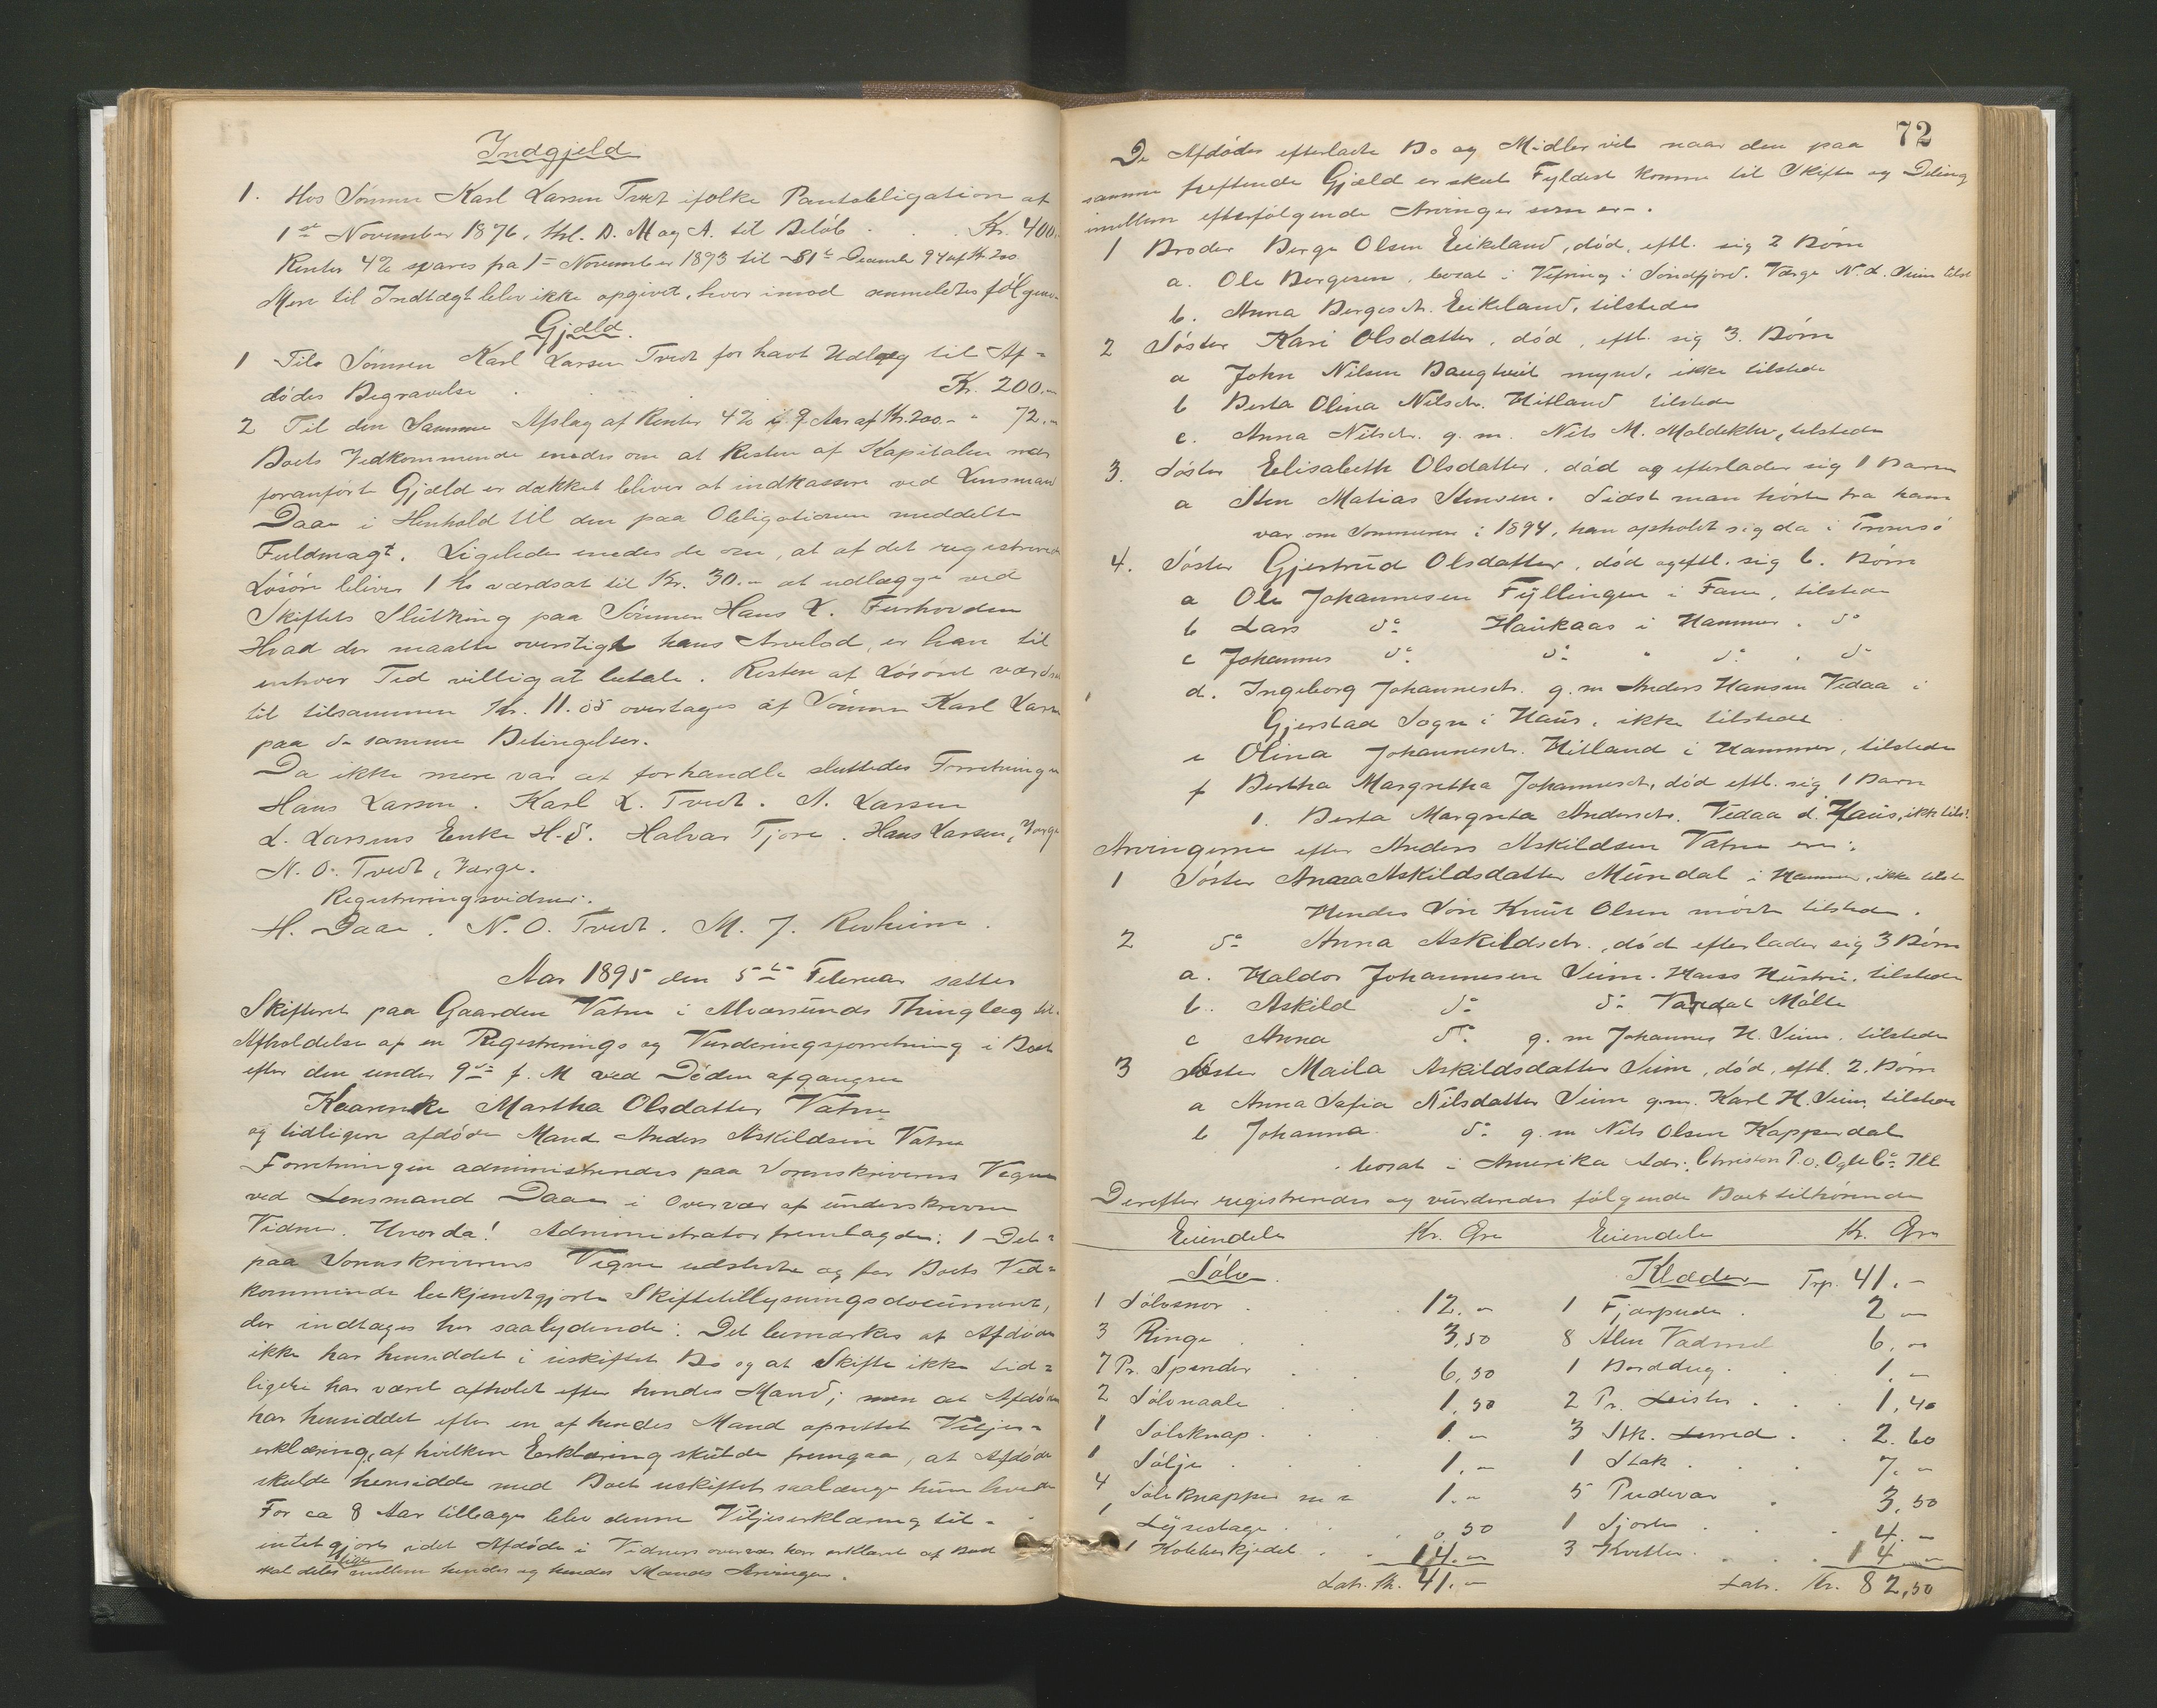 Indgjeld
1. Hos Sønnen Karl Larsen Tvedt ifølke Pantobligation af
1ste November 1876, thl. D. M og A. til Beløb . . . Kr. 400.
Renter 4% spares fra 1= November 1893 til 31te December 94 af Kr. 200
Mere til Indtægt blev ikke opgivet, hvor imod anmeldtes følgende
Gjæld.
1 Til Sønnen Karl Larsen Tvedt for havt Udlæg til Af-
dødes Begravelse . . . Kr. 200.-
2 Til den Samme Afslag af Renter 4% i 9 Aar af Kr. 200.- " 72.-
Boets Vedkommende enedes om at Resten af Kapitalen naar
foranførte Gjæld er dækket bliver at indkassere ved Lensmand
Daae i Henhold til den paa Obligationen meddelte
Fuldmagt. Ligeledes enedes de om, at af det registrerede
Løsøre bliver 1 Ko værdsat til Kr. 30.- at udlægge ved
Skiftets Slutning paa Sønnen Hans L. Furhovden
Hvad der maatte overstige hans Arvelod, er han til
enhver Tid villig at betale. Resten af Løsøret værdsat
til tilsammen Kr. 11.05 overtages af Sønnen Karl Larsen
paa de samme Betingelser.
Da ikke mere var at forhandle sluttedes Forretningen
Hans Larsen. Karl L. Tvedt. A. Larsen
L. Larsens Enke H. S. Halvar Tjore. Hans Larsen, Verge
N. O. Tvedt, Verge.
Registreringsvidner:
H. Daae. N. O. Tvedt. M. J. Revheim.
Aar 1895 den 5te Februar sattes
Skifteret paa Gaarden Vatne i Alversunds Thinglag til
Afholdelse af en Registrerings og Vurderingsforretning i Boet
efter den under 9de f. M ved Døden afgangne
Kaarenke Martha Olsdatter Vatne
og tidligere afdøde Mand Anders Askildsen Vatne
Forretningen administreredes paa Sorenskriverens Vegne
ved Lensmand Daae i Overvær af underskrevne
Vidner. Hvorda! Administrator fremlagde: 1 Det-
paa Sorenskriverens Vegne udstedte og for Boets Ved=
kommende bekjendtgjorte Skiftetillysningsdocument,
der indtages her saalydende: Det bemærkes at Afdøde
ikke har hensiddet i uskiftet Bo og at Skifte ikke tid=
ligere har været afholdt efter hendes Mand; men at Afdøde
har hensiddet efter en af hendes Mand oprettet Viljes=
erklæring, af hvilken Erklæring skulde fremgaa, at Afdøde
skulde hensidde med Boet uskiftet saalænge hun levede
For ca 8 Aar tilbage blev denne Viljeserklæring til-
intetgjort idet Afdøde i Vidners overvær har erklæret at Boet
skal deles lige mellem hendes og hendes Mands Arvinger.
72
De Afdødes efterladte Bo og Midler vil naar den paa
samme heftende Gjæld er sket Fyldest komme til Skifte og Deling
imellem efterfølgende Arvinger som er-.
1 Broder Berge Olsen Eikeland, død, eftl. sig 2 Børn
a. Ole Bergesen, bosat i Vefring i Søndfjord. Verge N. L. Seim tilst
b. Anna Bergesdt. Eikeland, tilstede
2 Søster Kari Olsdatter, død, eftl. sig 3. Børn
a John Nilsen Daugtveit mynd. ikke tilstede
b Berta Olina Nilsdt. Hitland tilstede
c. Anna Nilsdt. g. m. Nils M. Moldeklev, tilstede
3. Søster Elisabeth Olsdatter, død og efterlader sig 1 Barn
a Sten Matias Stensen. Sidst man hørte fra ham
var om Sommeren i 1894, han opholdt sig da i Tromsø
4. Søster Gjertrud Olsdatter, død og eftl. sig 6. Børn
a Ole Johannesen Fyllingen i Fane, tilstede
b Lars do Haukaas i Hammer. do
c Johannes do do " do . do
d. Ingeborg Johannesdt. g. m Anders Hansen Vedaa i
Gjerstad Sogn i Haus, ikke tilstede
e Olina Johannesdt. Hitland i Hammer, tilstede
f Bertha Margretha Johannesdt, død eftl. sig 1 Barn
1. Berta Margreta Andersdt. Vedaa i Haus, ikke tilst.
Arvingerne efter Anders Askildsen Vatne ere:
1 Søster Anna Askildsdatter Mundal i Hammer, ikke tilst
Hendes Søn Knut Olsen mødte tilstede.
2 do Anna Askildsdt., død efterlader sig 3 Børn
a. Haldor Johannesen Seim. Hans Hustru, tilstede
b. Askild do do Vardal Mølle
c Anna do g. m Johannes H. Seim, tilstede
3 Søster Maila Askildsdatter Seim, død, eftl. 2. Børn
a Anna Safia Nilsdatter Seim g. m. Karl H. Seim, tilstede
b Johanna do g. m Nils Olsen Kapperdal
bosat i Amerika Adr. Christon P. O. Ogle Co Ill
Derefter registreredes og vurderedes følgende Boet tilhørende
Eiendele Kr. Øre Eiendele Kr. Øre
Sølv. Klæder Trp. 41.-
1 Sølvsnor . 12.- 1 Fjærpude . 2 -
3 Ringe . 3,50 8 Alen Vadmel 6,-
7 Pr. Spender . 6,50 1 Borddug. . 1.-
2 Sølvnaale . 1,50 2 Pr. Leister . 1,40
1 Sølvknap . 1.- 3 Stk. Lerred . 2.60
1 Sølje . 1.- 1 Stak . 7.-
4 Sølvknapper m m 1.- 5 Pudevar . 3,50
1 Lysestage . 0,50 1 Sjorte . 4.-
1 Kobberkjedel . 14.- 3 Kvitler . 14 -
Lats. Kr. 41.- Lats. Kr. 82,50